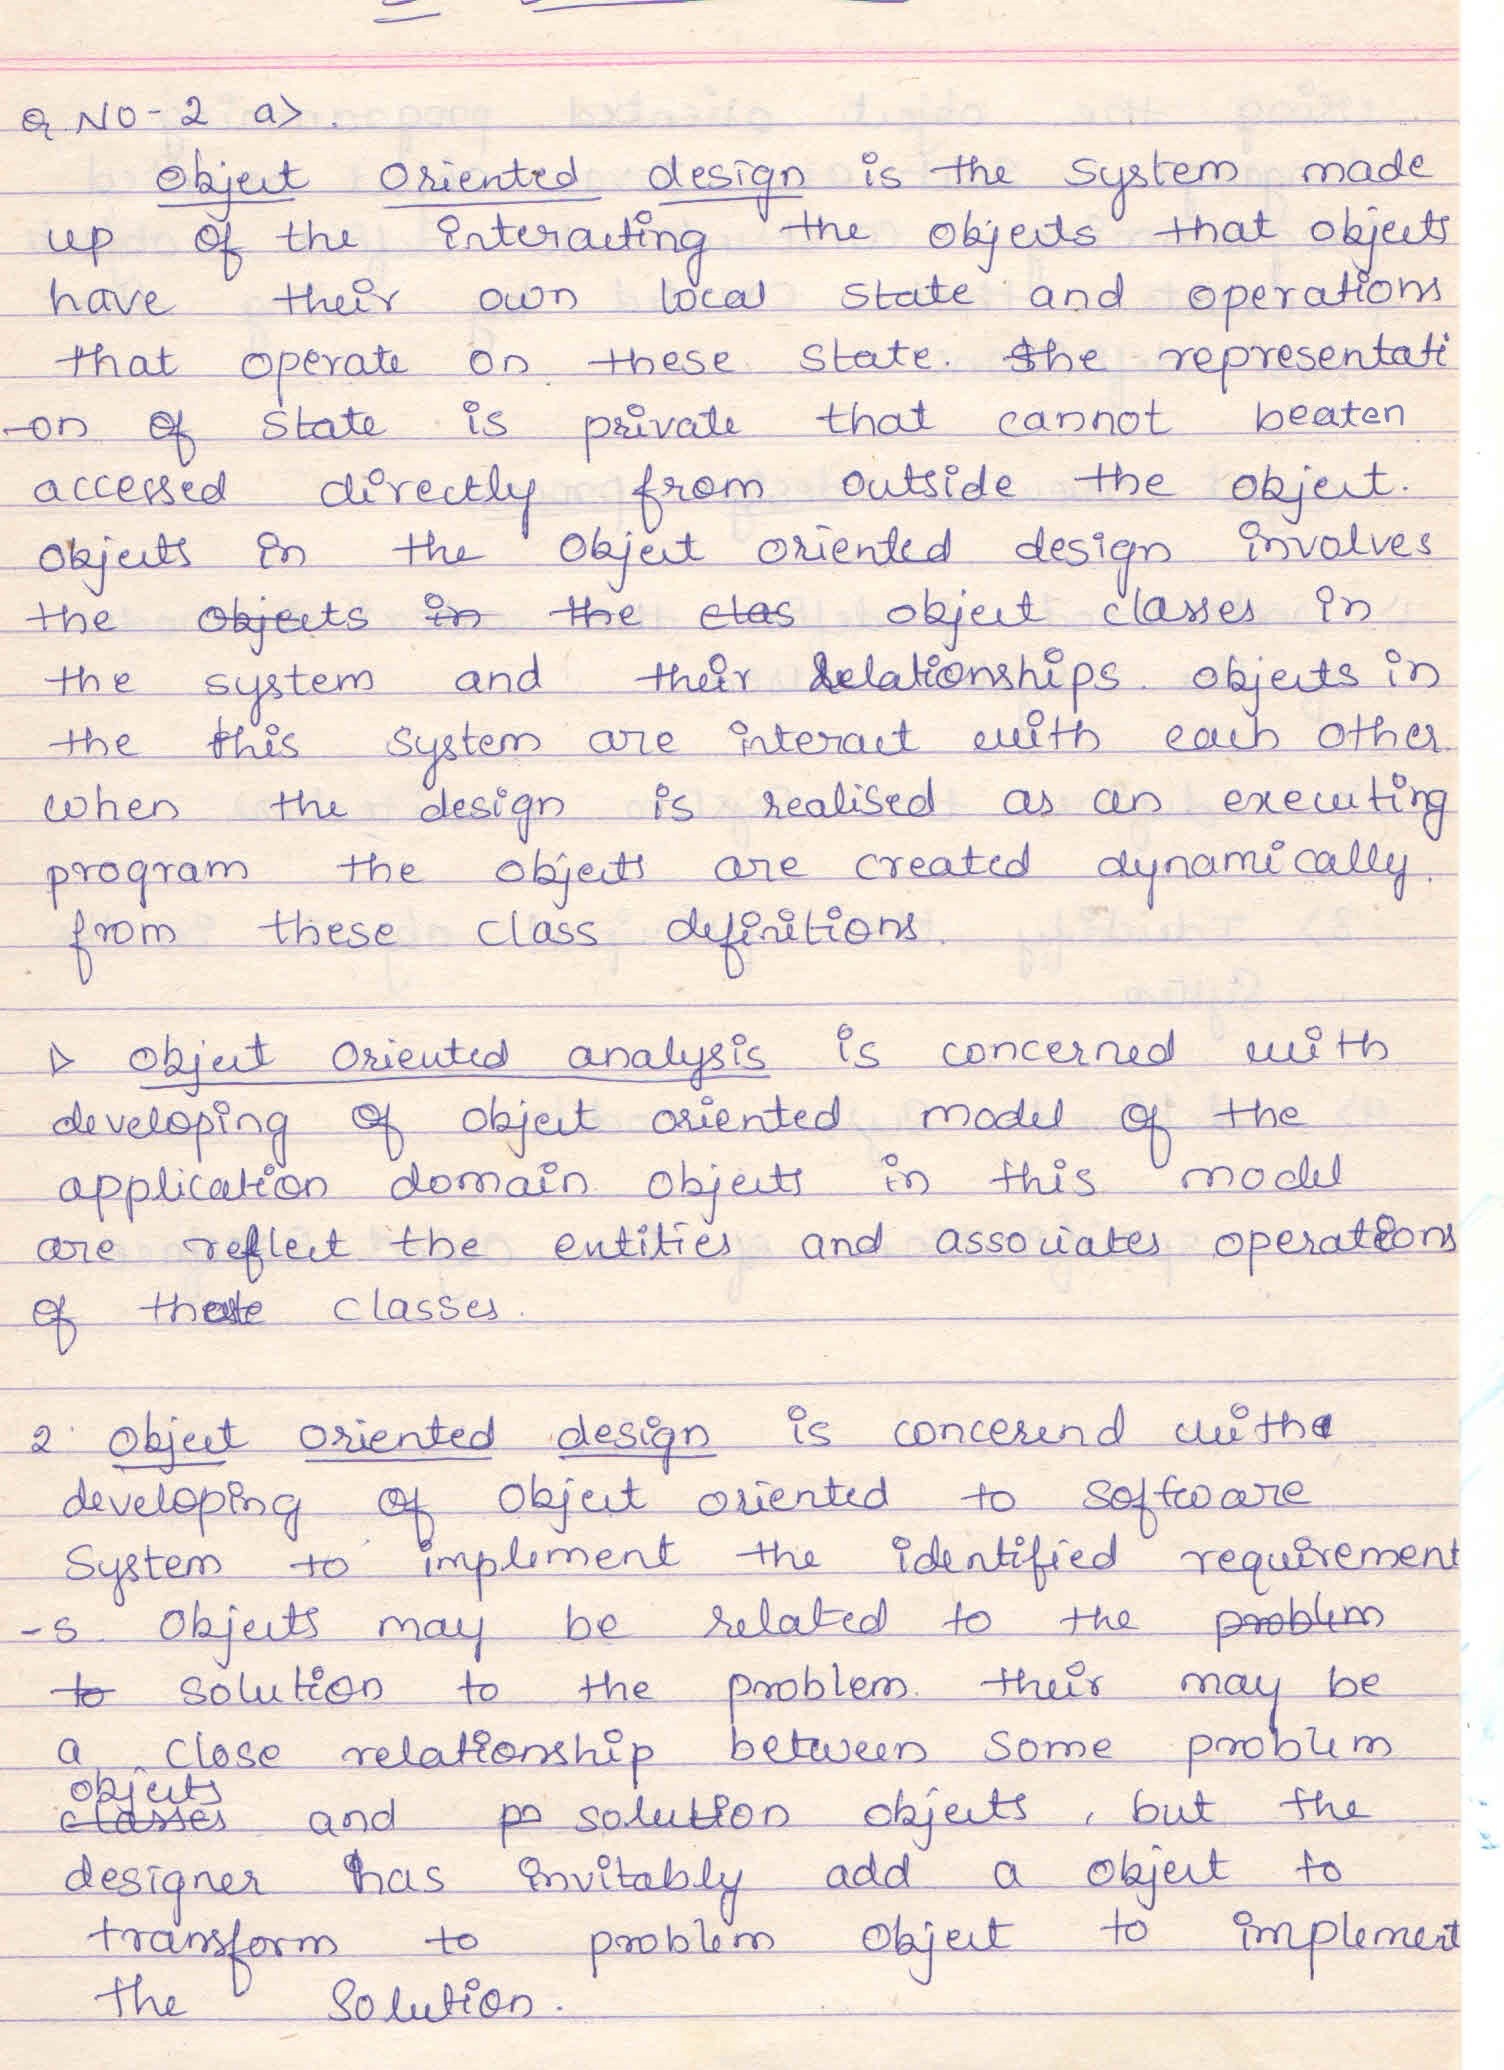 Q NO - 2 a>.
Object Oriented design is the system made
up of the interacting the objects that objects
have their own local state and operations
that operate on these state. The representati
-on of state is private that cannot beaten
accessed directly from outside the object.
Objects in the Object oriented design involves
the objects in the clas object classes in
the system and their relationships. objects in
the this system are interact with each other.
when the design is realised as an executing
program the objects are created dynamically.
from these class definitions.
1> Object Oriented analysis is concerned with
developing of object oriented model of the
application domain. objects in this model
are reflect the entities and associates operations
of these classes.
2. Object oriented design is concerend with
developing of Object oriented to software
System to implement the identified requirement
-s. Objects may be related to the problem
to solution to the problem. their may be
a close relationship between some problem
objects
classes and po solution objects, but the
designer has invitably add a object to
transform to problem object to implement
the Solution.